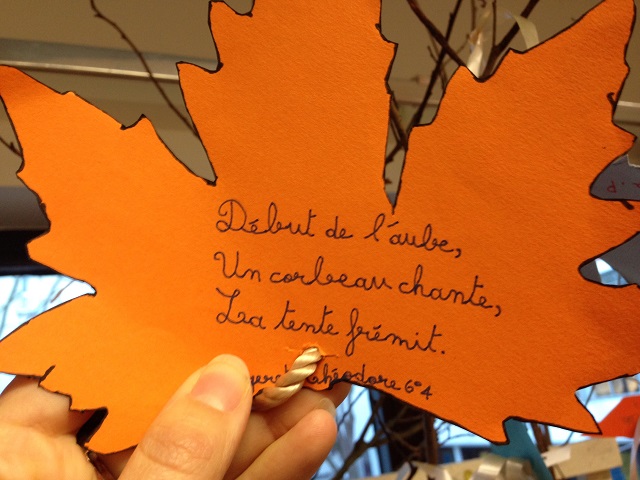 Début de l'aube,
Un corbeau chante,
La tente frémit.
Théodore 6°4